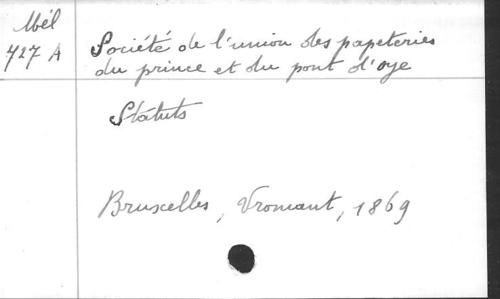 Mél
727 A
Société de l'union des papeteries
du prince et du pont d'oye
Statuts
Bruxelles, Vromant, 1869